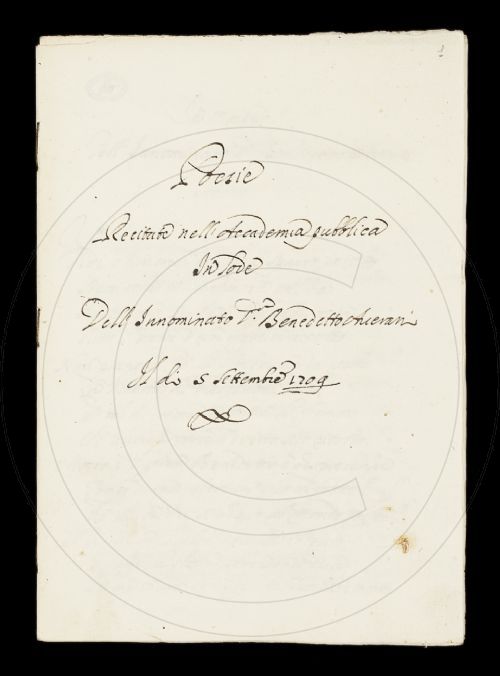 1
Poesie
Recitate nell'Accademia pubblica
In Lode
Dell'Innominato Dr. Benedetto Averani
Il dì 5 Settembre 1709